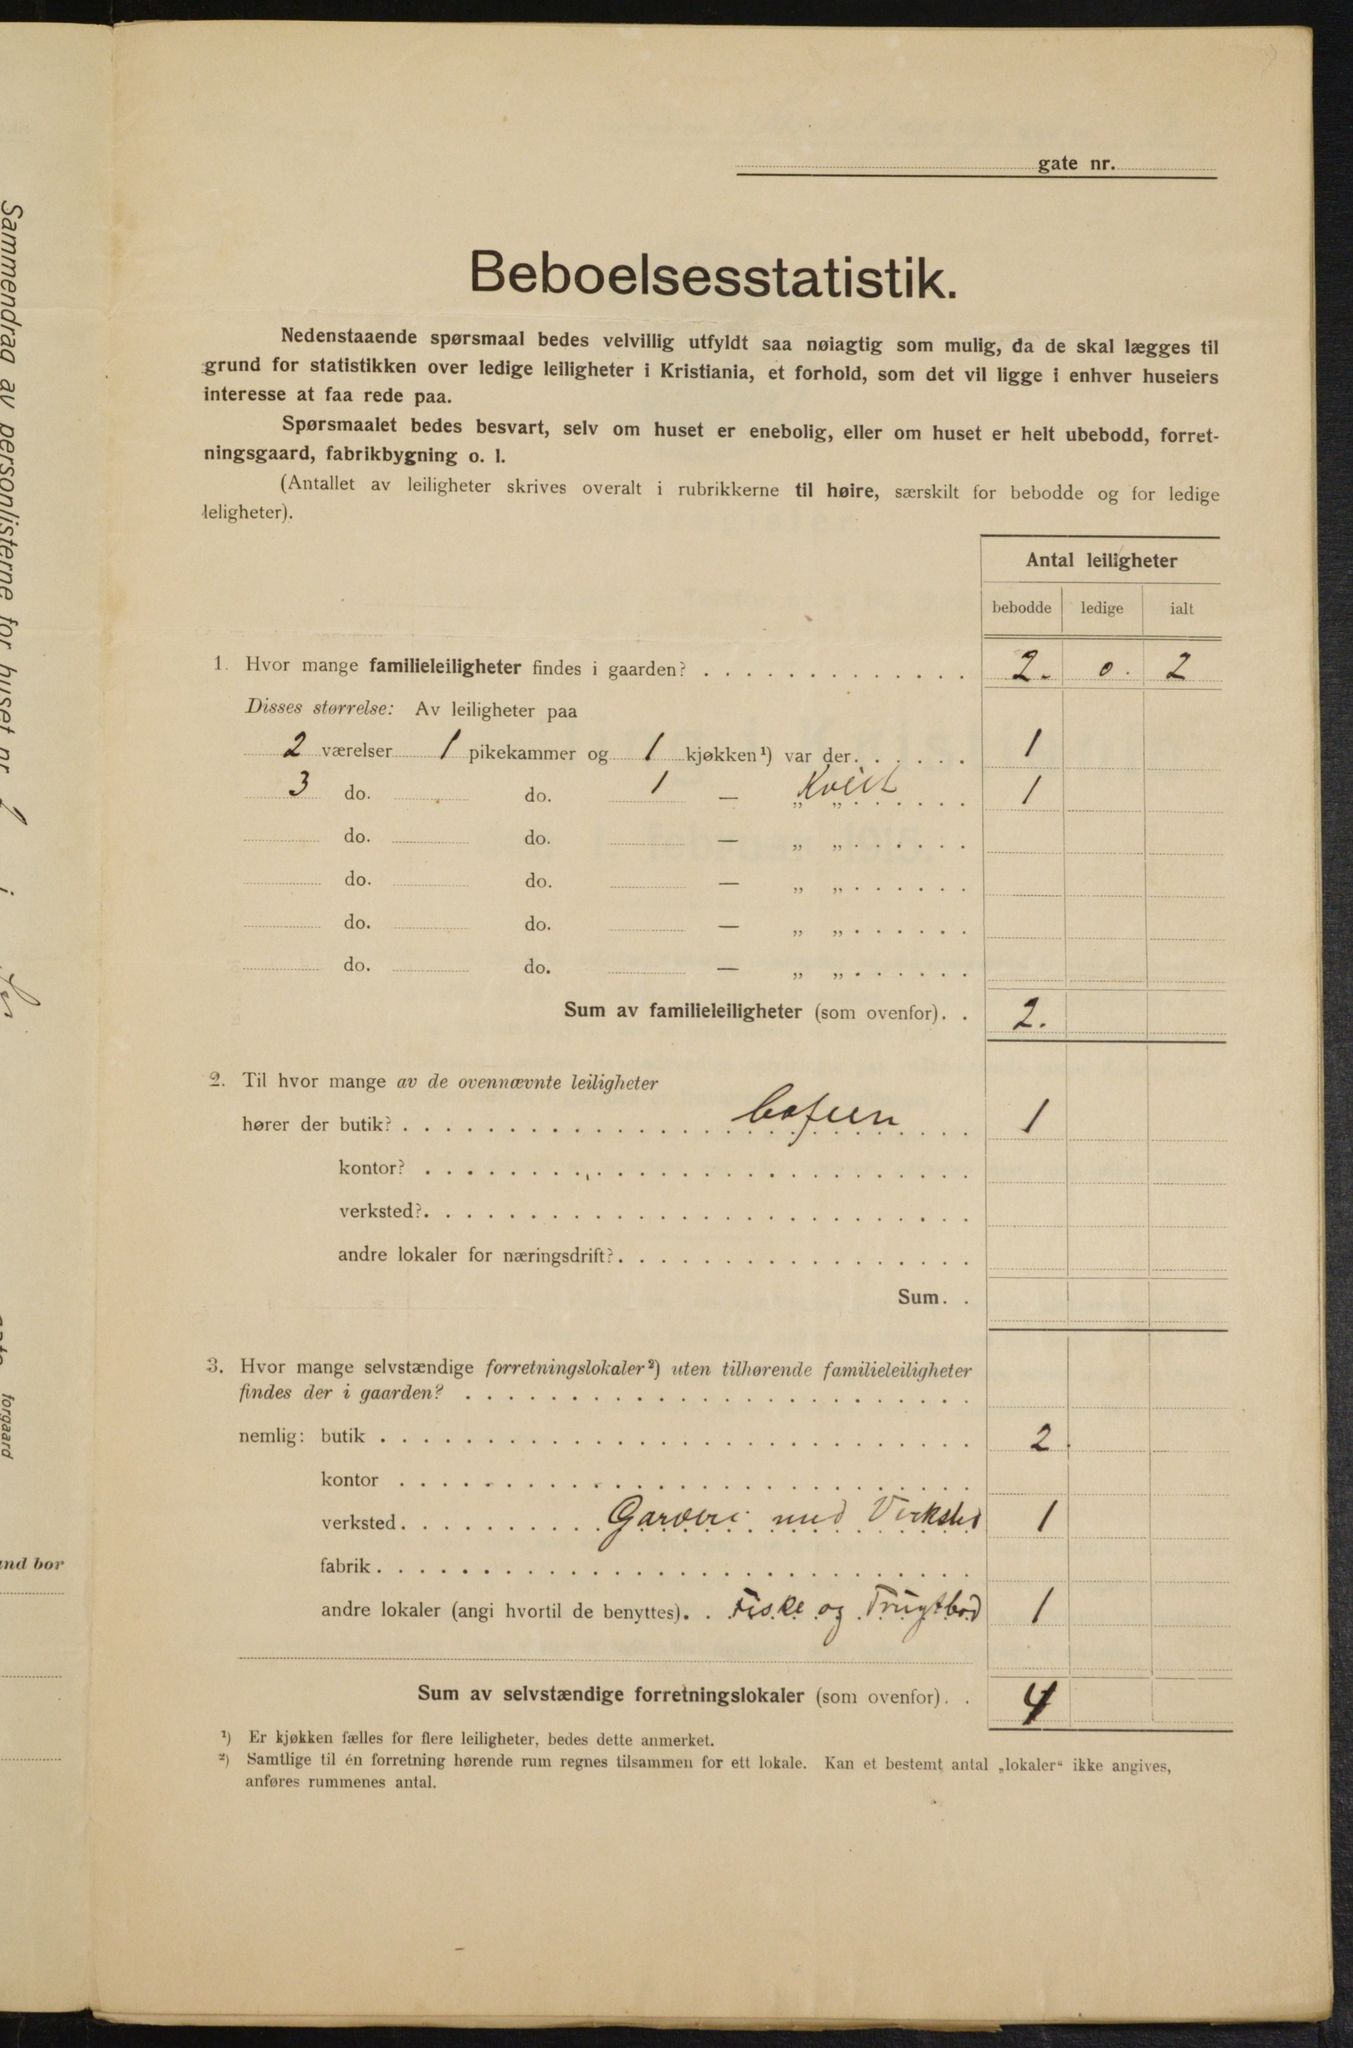 gate nr.
Beboelsesstatistik.
Nedenstaaende spørsmaal bedes velvillig utfyldt saa nøiagtig som mulig, da de skal lægges til
grund for statistikken over ledige leiligheter i Kristiania, et forhold, som det vil ligge i enhver huseiers
interesse at faa rede paa.
Spørsmaalet bedes besvart, selv om huset er enebolig, eller om huset er helt ubebodd, forret-
ningsgaard, fabrikbygning o. l.
(Antallet av leiligheter skrives overalt i rubrikkerne til høire, særskilt for bebodde og for ledige
leligheter).
Antal leiligheter
bebodde ledige ialt
1. Hvor mange familieleiligheter findes i gaarden? . . . . . . . . . . . . . 2. 0. 2
Disses størrelse: Av leiligheter paa
2 værelser 1 pikekammer og 1 kjøkken¹) var der. . . . . . 1
3 do. do. 1 — „ „ . . . . . . 1
do. do. — „ „ . . . . . .
do. do. — „ „ . . . . . .
do. do. — „ „ . . . . . .
do. do. — „ „ . . . . . .
Sum av familieleiligheter (som ovenfor). . 2.
2. Til hvor mange av de ovennævnte leiligheter
hører der butik? . . . . . 1
kontor? . . . . .
verksted?. . . . .
andre lokaler for næringsdrift?. . . . .
Sum. .
3. Hvor mange selvstændige forretningslokaler²) uten tilhørende familieleiligheter
findes der i gaarden? . . . . .
nemlig: butik . . . . . 2
kontor . . . . .
verksted. . . . . Garveri med Verksted 1
fabrik. . . . .
andre lokaler (angi hvortil de benyttes). . Fiske og Frugtbod 1
Sum av selvstændige forretningslokaler (som ovenfor). . 4
¹) Er kjøkken fælles for flere leiligheter, bedes dette anmerket.
²) Samtlige til én forretning hørende rum regnes tilsammen for ett lokale. Kan et bestemt antal „lokaler“ ikke angives,
anføres rummenes antal.
Sammendrag av personlisterne for huset nr.
forgaard
and bor